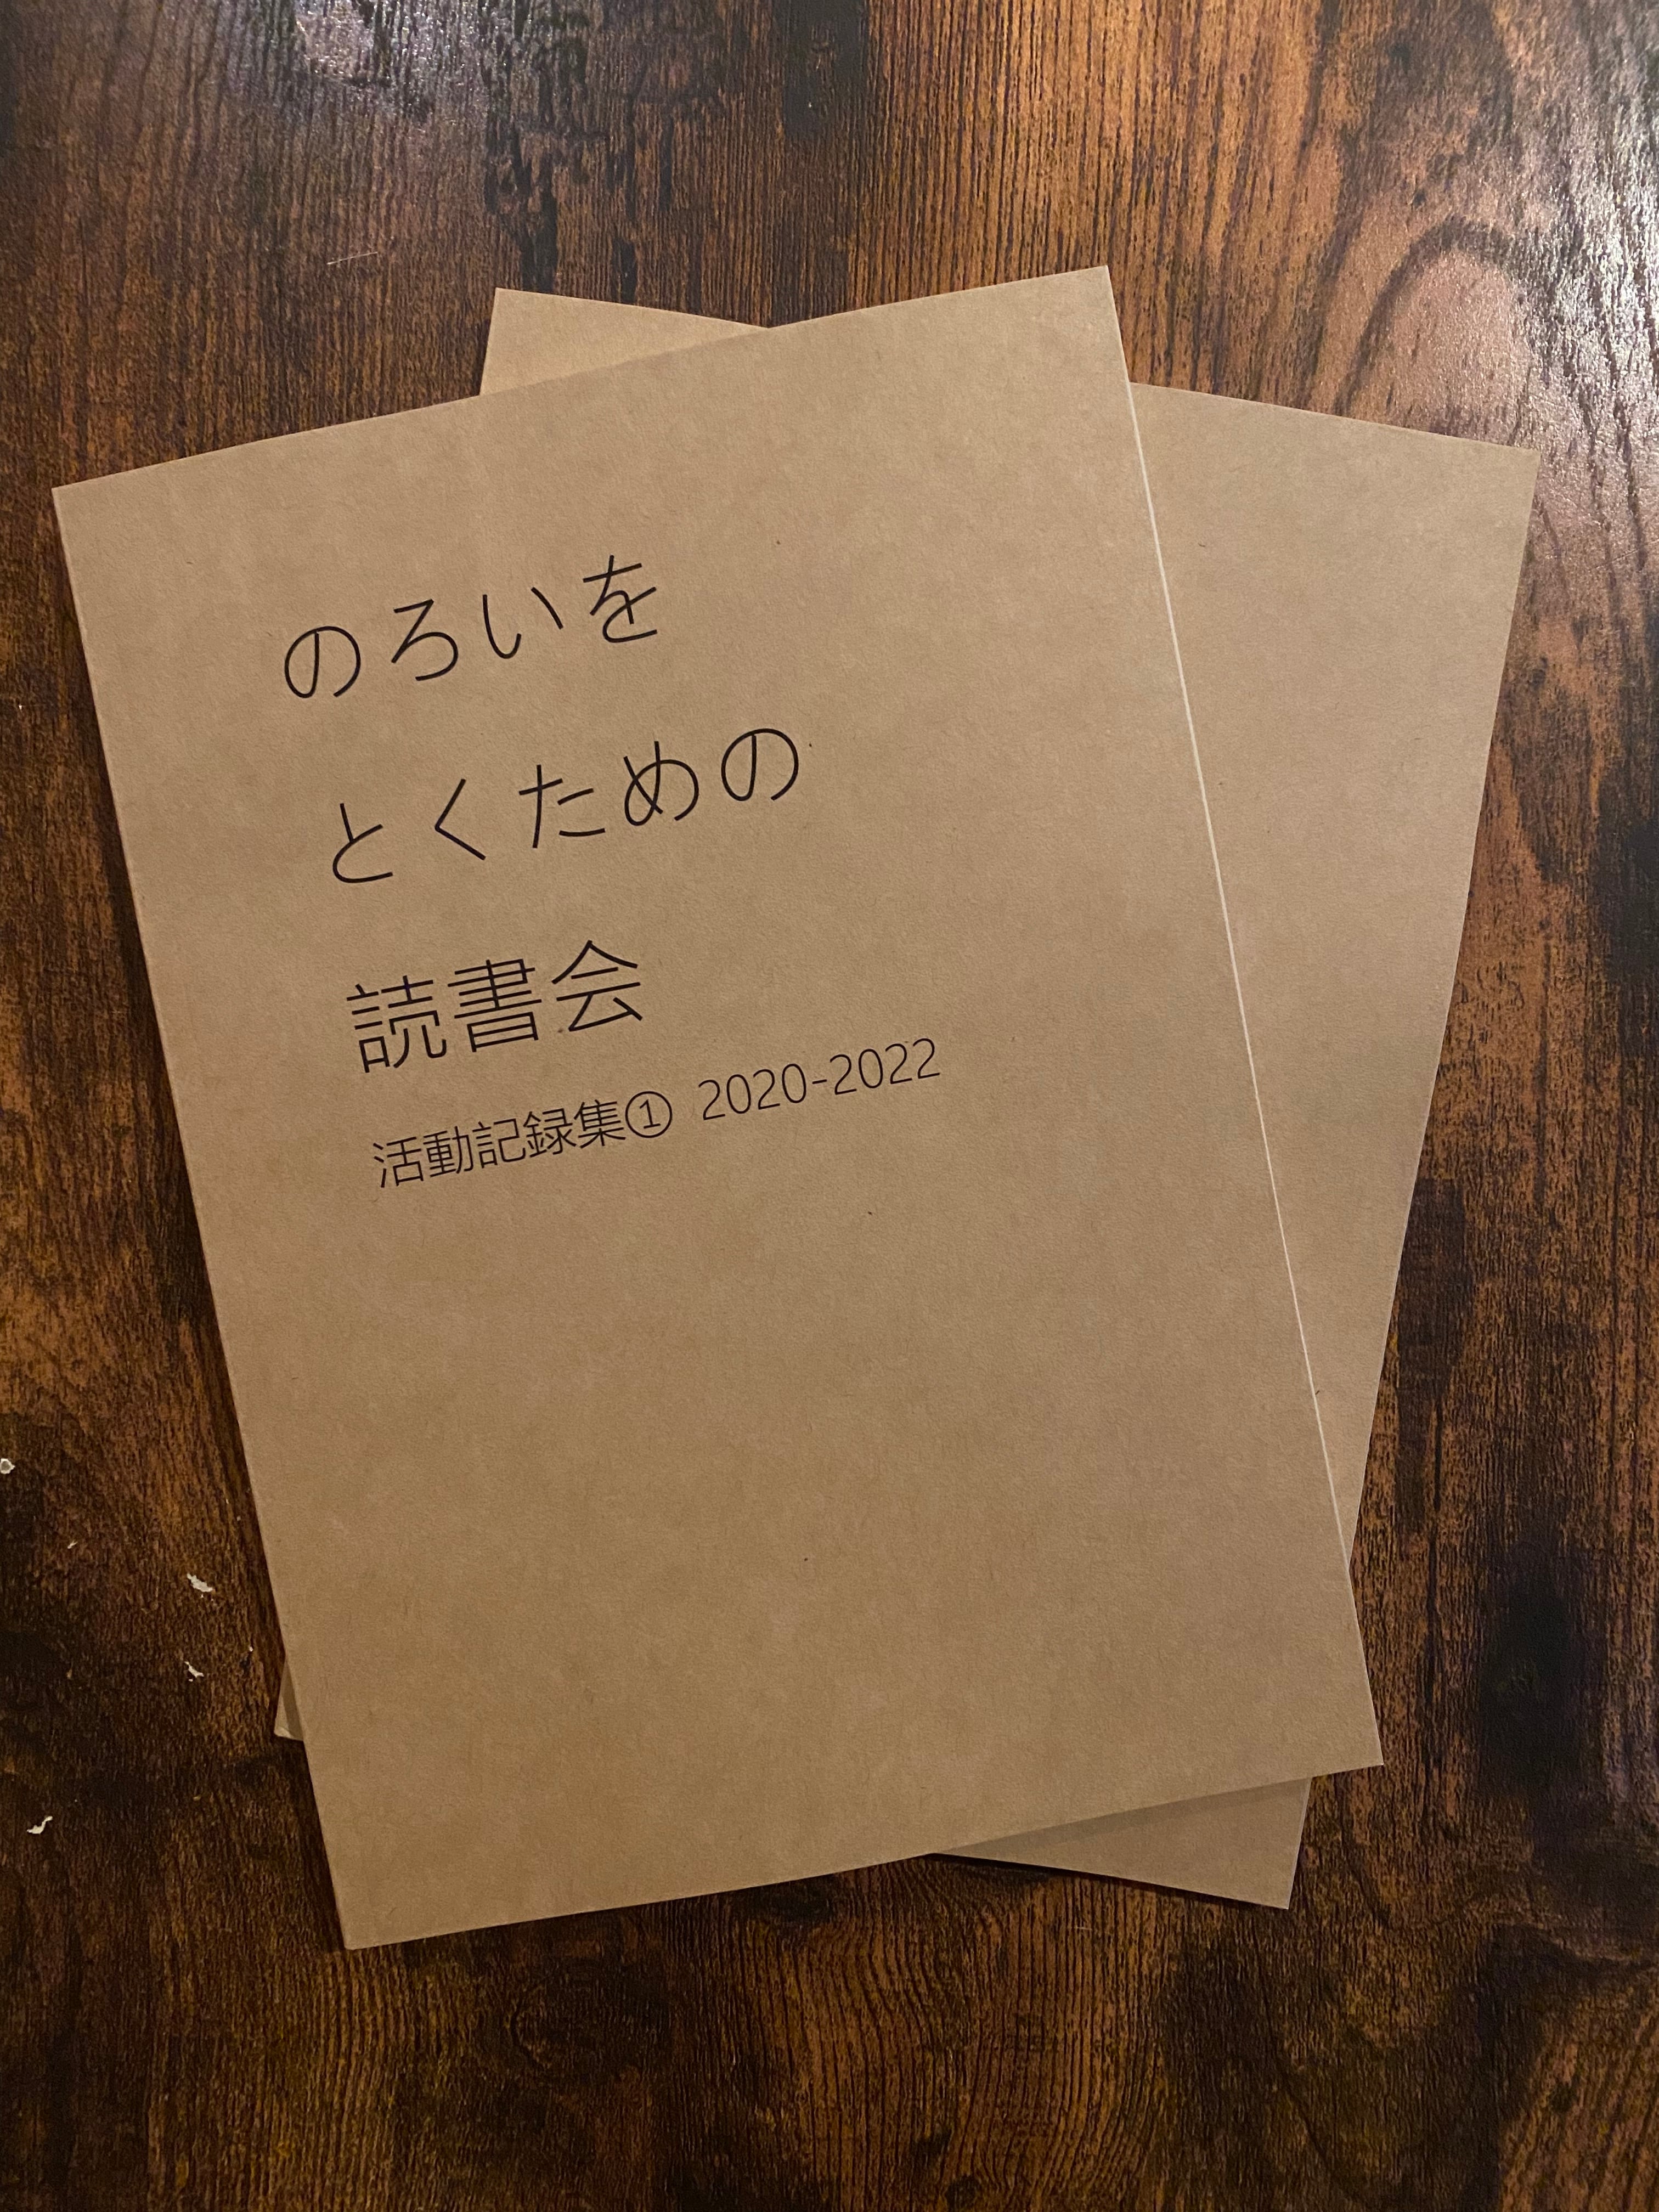 のろいを
とくための
読書会
活動記録集① 2020-2022